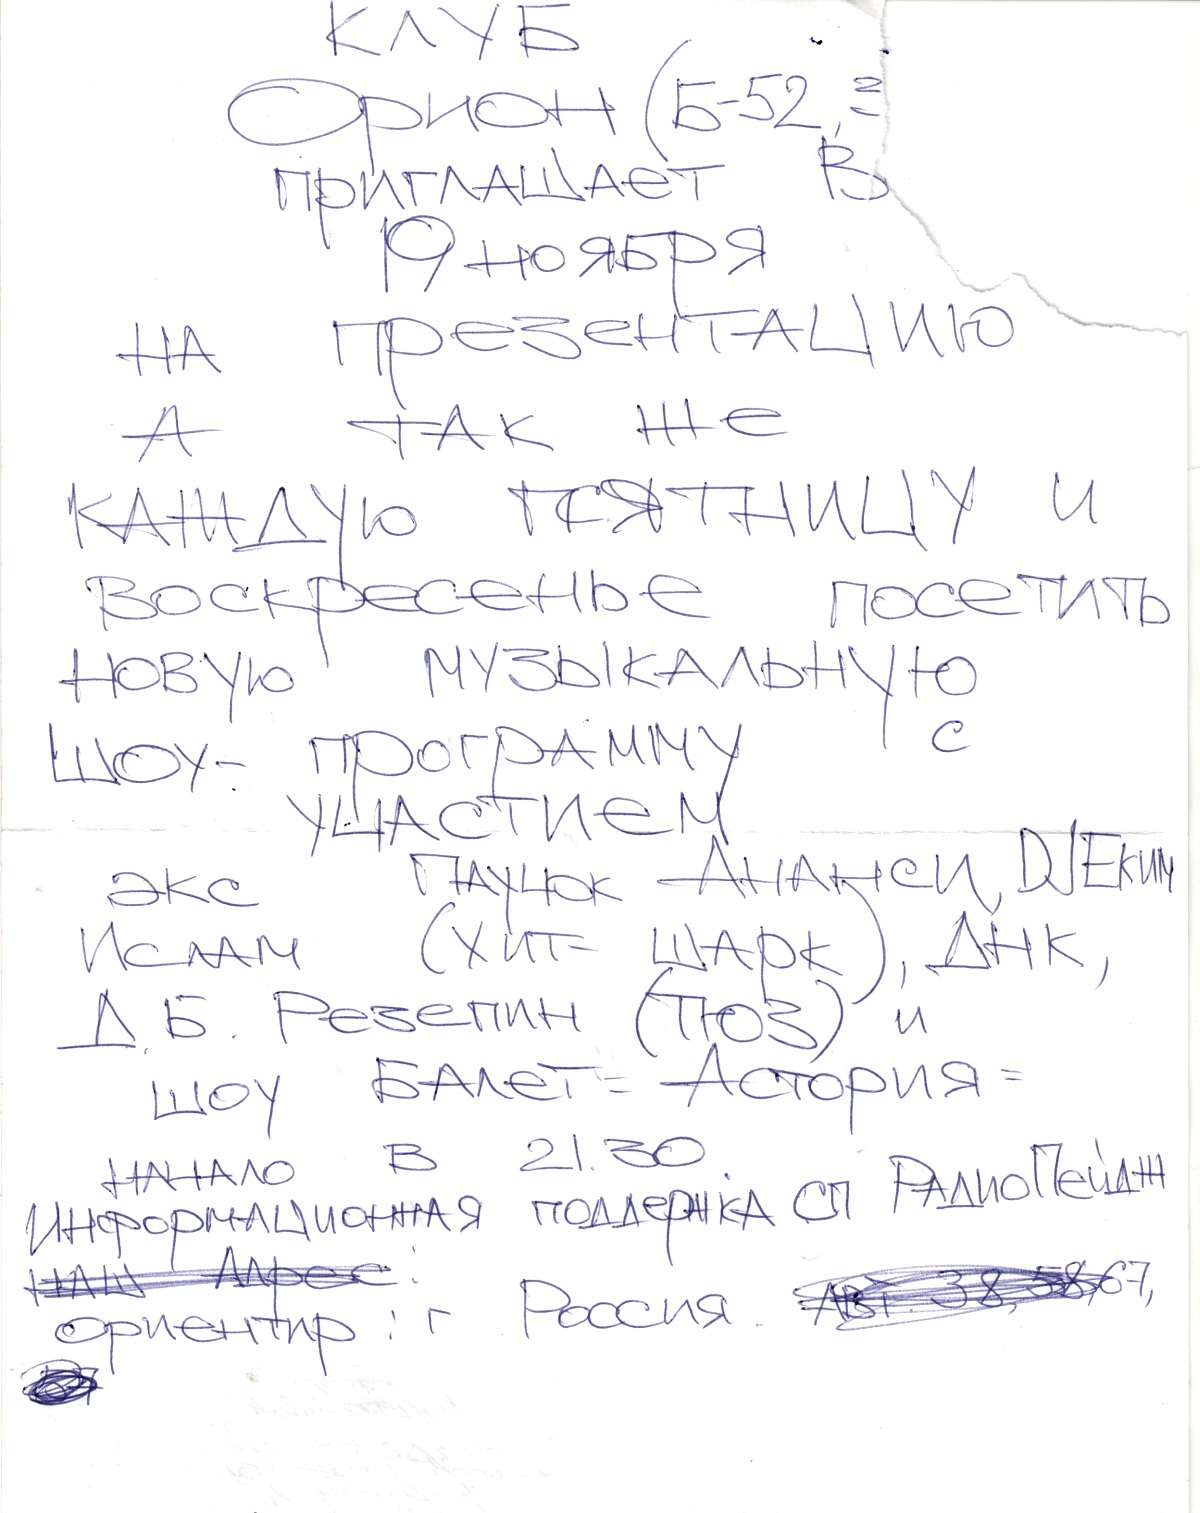 КЛУБ
Орион (Б-52,
приглашает В
19 ноября
на презентацию
А так же
каждую пятницу и
воскресенье посетить
новую музыкальную
шоу- программу с
участием
экс Паучок Ананси, DJ Еким
Ислам (хит- шарк), ДНК,
Д.Б. Резепин (ТЮЗ) и
шоу Балет= Астория=
начало в 21.30.
Информационная поддержка СП РадиоПейдж
наш Адрес:
ориентир: г Россия. Авт. 38, 58, 67,